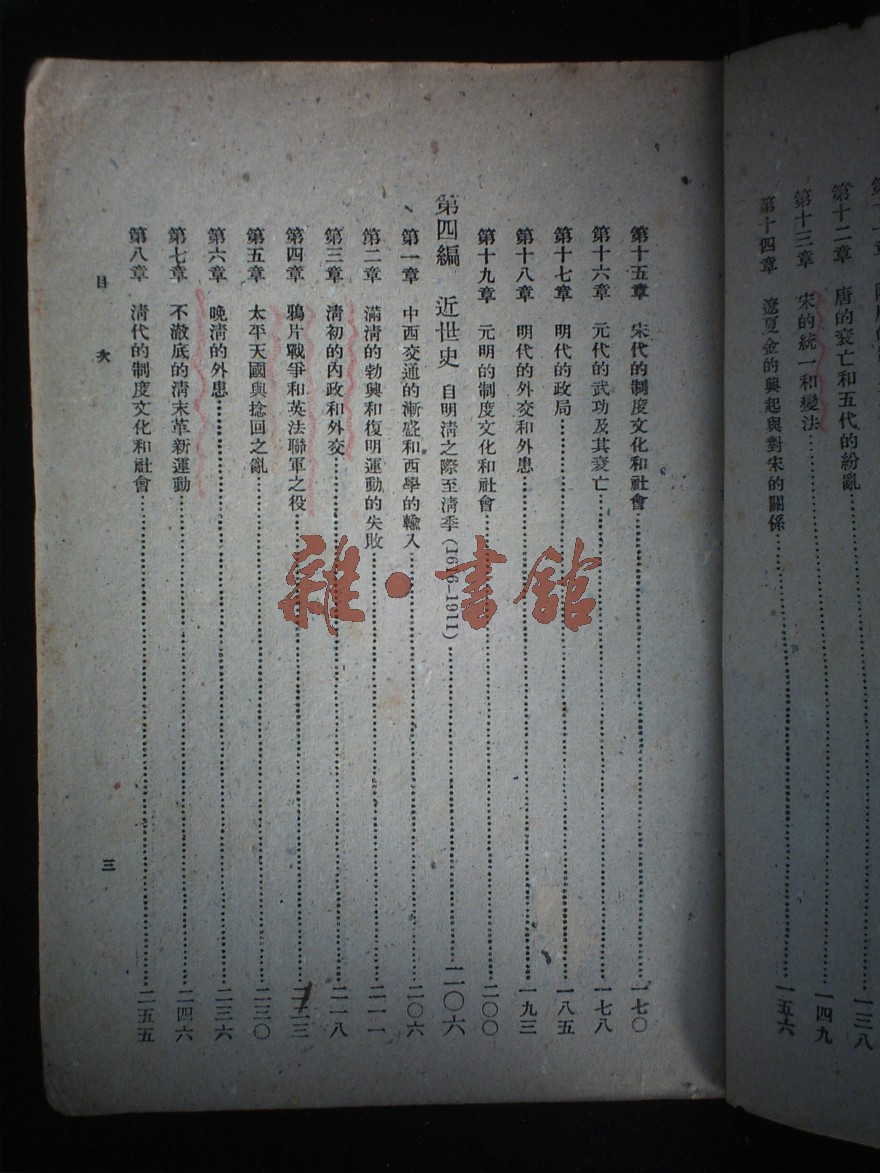 章 隋唐
第十二章 唐的衰亡和五代的紛亂 一三八
第十三章 宋的統一和變法 一四九
第十四章 遼夏金的興起與對宋的關係 一五六
第十五章 宋代的制度文化和社會 一七〇
第十六章 元代的武功及其衰亡 一七八
第十七章 明代的政局 一八五
第十八章 明代的外交和外患 一九三
第十九章 元明的制度文化和社會 二〇〇
第四編 近世史 自明淸之際至淸季(16 6-1911) 二〇六
第一章 中西交通的漸盛和西學的輸入 二〇六
第二章 滿淸的勃興和復明運動的失敗 二一一
第三章 淸初的內政和外交 二一八
第四章 鴉片戰爭和英法聯軍之役 二二三
第五章 太平天國與捻回之亂 二三〇
第六章 晚淸的外患 二三六
第七章 不澈底的淸末革新運動 二四六
第八章 淸代的制度文化和社會 二五五
目次 三
雜·書館